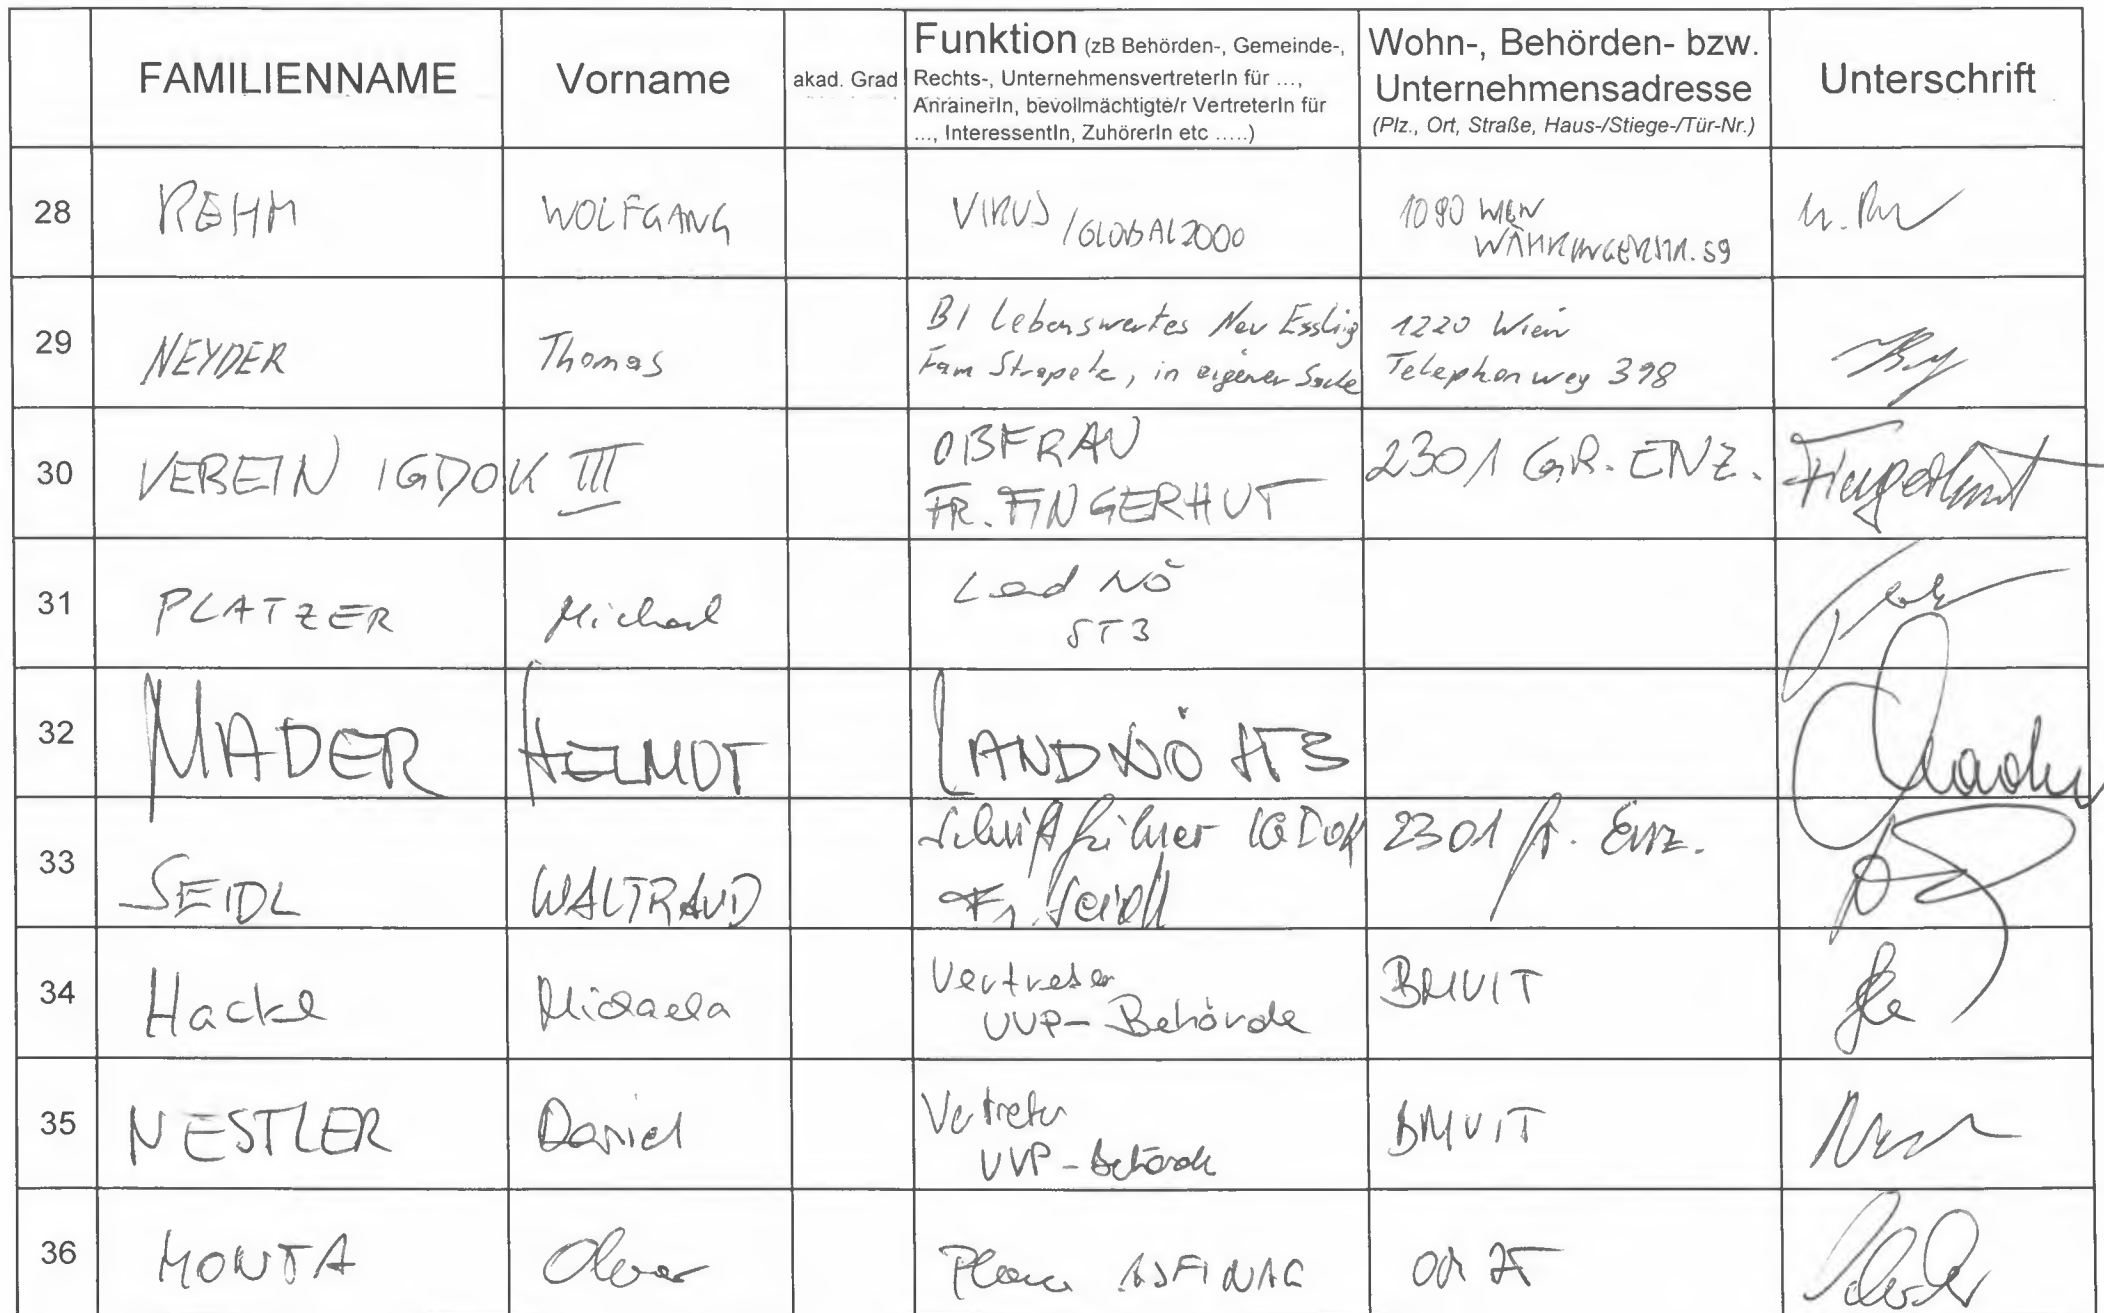 FAMILIENNAME Vorname akad. Grad Funktion (zB Behörden-, Gemeinde-, Rechts-, UnternehmensvertreterIn für ..., AnrainerIn, bevollmächtigte/r VertreterIn für ..., InteressentIn, ZuhörerIn etc .....) Wohn-, Behörden- bzw. Unternehmensadresse (Plz., Ort, Straße, Haus-/Stiege-/Tür-Nr.) Unterschrift
28 REHM WOLFGANG VIRUS /GLOBAL2000 1090 WIEN WÄHRINGERSTR. 59
29 NEYDER Thomas BI Lebenswertes Neu Essling Fam Strapete, in eigener Sache 1220 Wien Telephonweg 398
30 VEREIN IGDOK III OBFRAU FR. FINGERHUT 2301 GR. ENZ. Fingerhut
31 PLATZER Michael Land NÖ ST3
32 MADER HELMUT LAND NÖ ST3 Mader
33 SEIDL WALTRAUD Schriftführer IGDOK Fr. Seidl 2301 Gr. Enz.
34 Hackl Michaela Vertreter UVP-Behörde BMVIT
35 NESTLER Daniel Vertreter UVP-Behörde BMVIT
36 MONTA Oliver ASFINAG